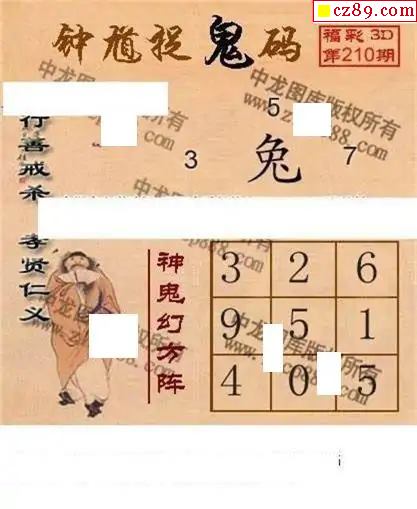 cz89.com
钟馗捉鬼码
福彩3D
第210期
中龙图库版权所有
行善戒杀 孝贤仁义
5
3 兔 7
神鬼幻方阵
3 2 6
9 5 1
4 0 5